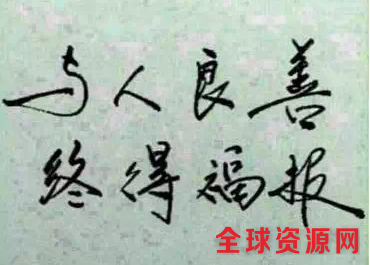 与人良善
终得福报
全球资源网